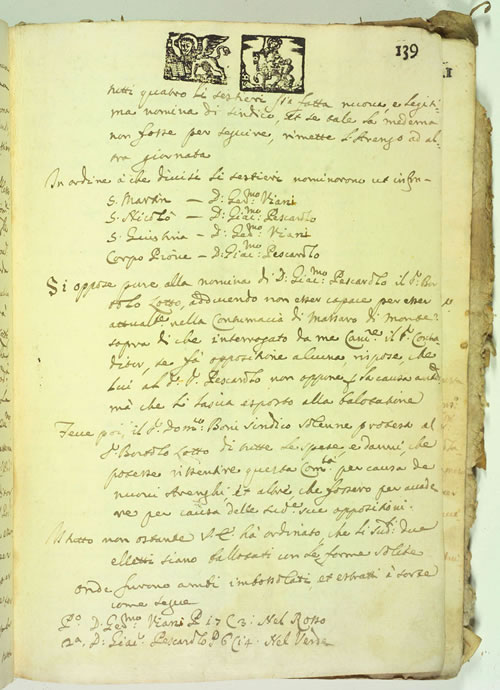 139
tutti quatro li sestieri sia fatta nuova, e legiti-
ma nomina di sindico, et se tale la medema
non fosse per seguire, rimette l'Arengo ad al-
tra giornata
In ordine à che divisi li sestieri nominorono ut infra
S. Martin — D: Ger:mo Viani
S. Nicolò — D: Giac:mo Pescarolo
S. Giustina — D: Ger:mo Viani
Corpo Piove — D: Giac:mo Pescarolo
Si oppose pure alla nomina di D: Giac:mo Pescarolo il S:r Bor-
tolo Lotto, adducendo non esser capace per esser
attuale nella Massaro di monte
sopra di che interrogato da me Canc:re il S:r
se fà oppositione alcuna, rispose, che
lui al Pescarolo non oppone la causa
mà che li lascia esposto alla balotatione
Fece poi il S:r Dom:co Boni Sindico solenne protesta al
S:r Bortolo Lotto di tutte le spese, e danni, che
potesse rissentire questa Com:tà per causa de
nuovi Arenghi, et altre che fossero per accade-
re per causa delle sud:e sue oppositioni.
Il tutto non ostante hà ordinato, che li sud:i due
elletti siano ballottati con le forme solite
onde furono ambi imbossolati, et estratti à sorte
come segue
P:o D: Ger:mo Viani P 17 C 3: Nel Rosso
2:a D: Giac: Pescarolo P 6 C 14: Nel Verde